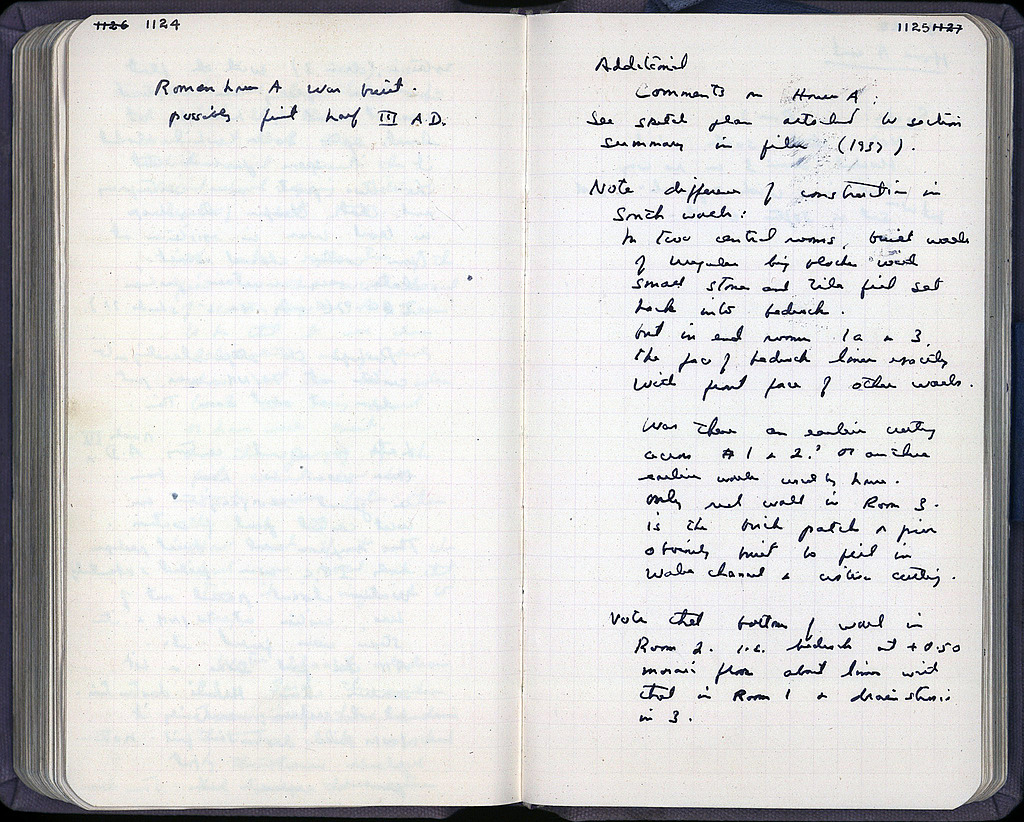 1126 1124
Roman house A was built.
possibly first half III A.D.
1125 1127
Additional
Comments on House A:
See sketch plan attached to section
summary in files (1937).
Note difference of construction in
South walls:
In two central rooms, built walls
of irregular big blocks with
small stones and tile fill set
back into bedrock.
but in end rooms 1a & 3,
the face of bedrock lines exactly
with front face of other walls.
Was there an earlier cutting
across # 1 & 2? or another
earlier used by house.
only real wall in Room 3.
is the brick patch & pier
obviously built to fill in
water channel & cistern cutting.
Note that bottom of wall in
Room 2. i.e. bedrock at +0.50
mosaic floor about lines with
that in Room 1 &
in 3.